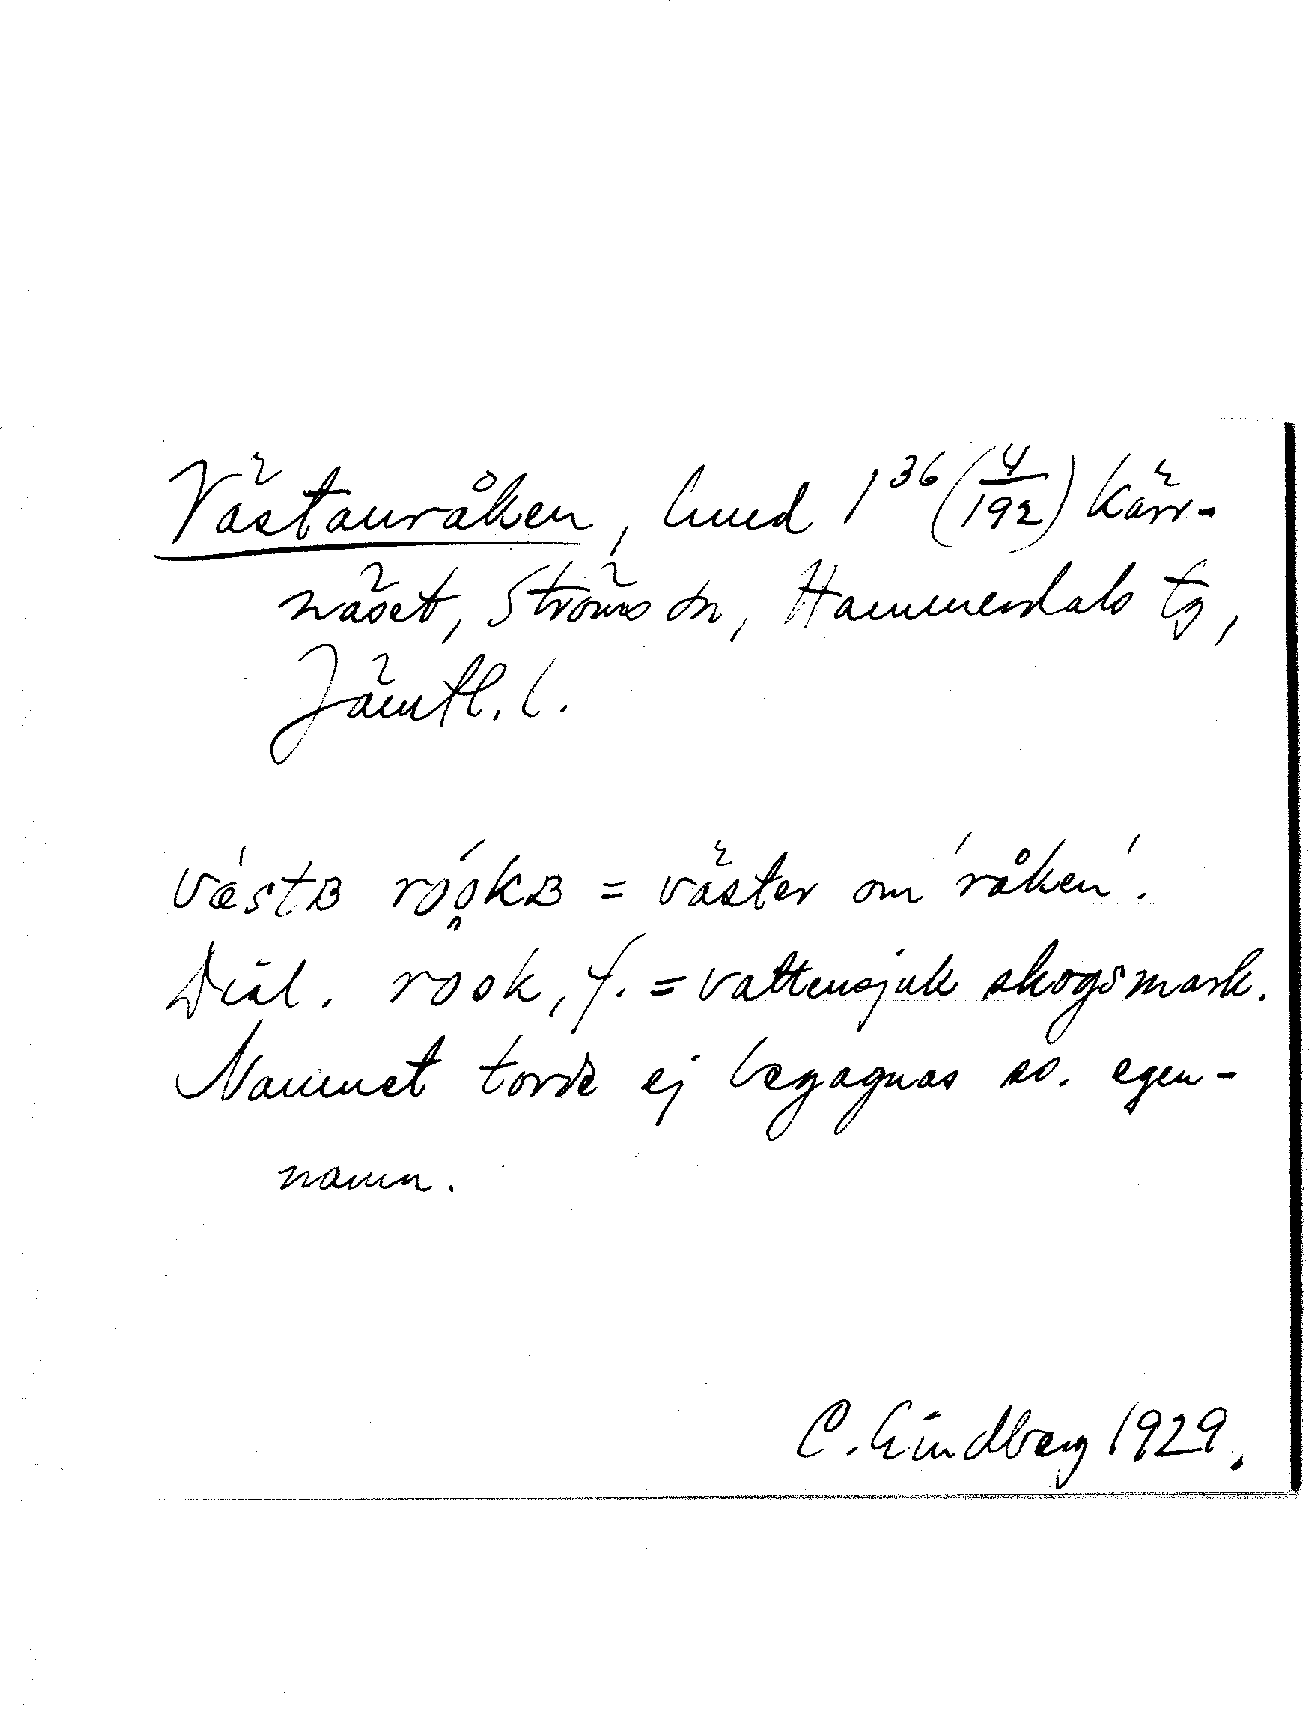 Västanråken, hmd 1³⁶ (4/192) Kärr-
näset, Ströms sn, Hammerdals tg,
Jämtl. l.
væ´stʙ rω´ωkʙ = väster om 'råken'.
Dial. rωωk, f. = vattensjuk skogsmark.
Namnet torde ej begagnas ss. egen-
namn.
C. Lindberg 1929.